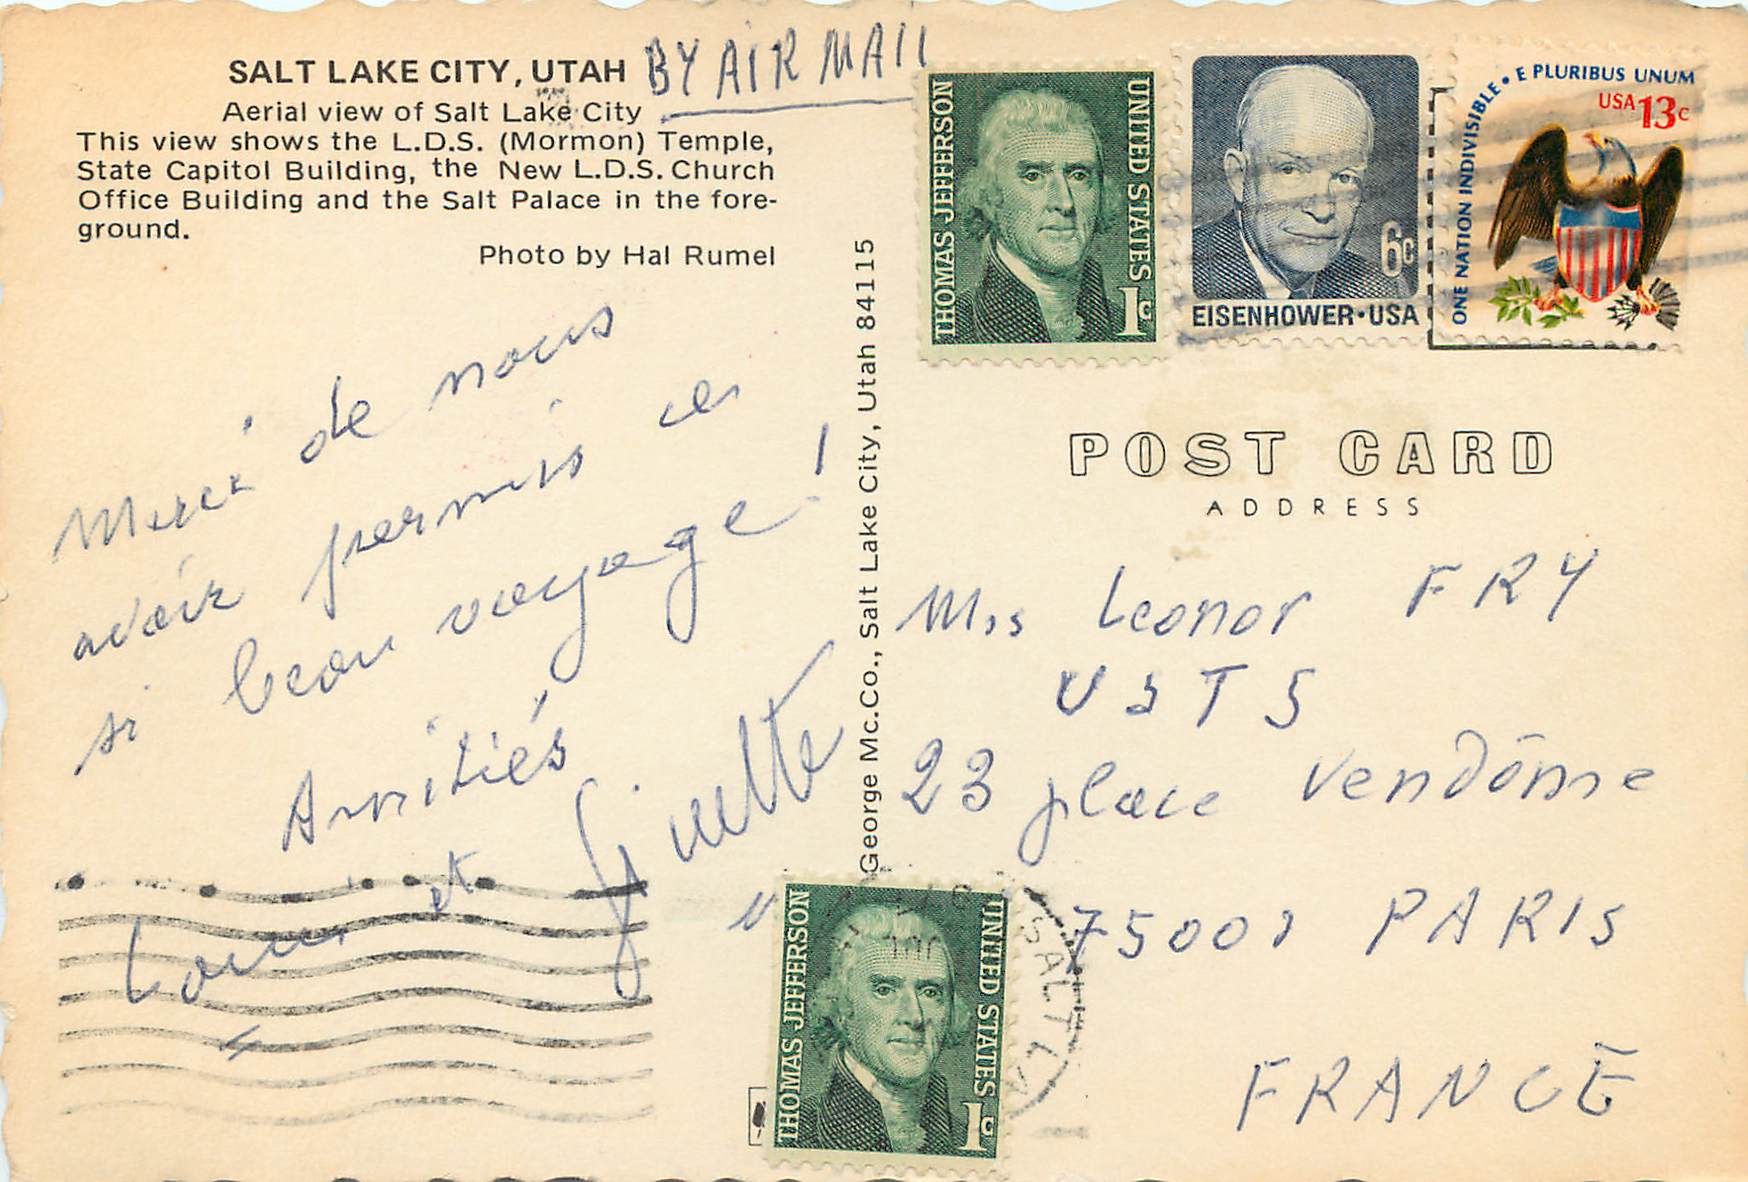 SALT LAKE CITY, UTAH
Aerial view of Salt Lake City
This view shows the L.D.S. (Mormon) Temple,
State Capitol Building, the New L.D.S. Church
Office Building and the Salt Palace in the fore-
ground.
Photo by Hal Rumel
BY AIR MAIL
Merci de nous
avoir permis ce
si beau voyage !
Amitiés
et Ginette
George Mc.Co., Salt Lake City, Utah 84115
THOMAS JEFFERSON
UNITED STATES
1c
6c
EISENHOWER·USA
ONE NATION INDIVISIBLE • E PLURIBUS UNUM
USA 13c
POST CARD
ADDRESS
Mrs Leonor FRY
USTS
23 place Vendôme
75001 PARIS
FRANCE
THOMAS JEFFERSON
UNITED STATES
1c
SALT LA